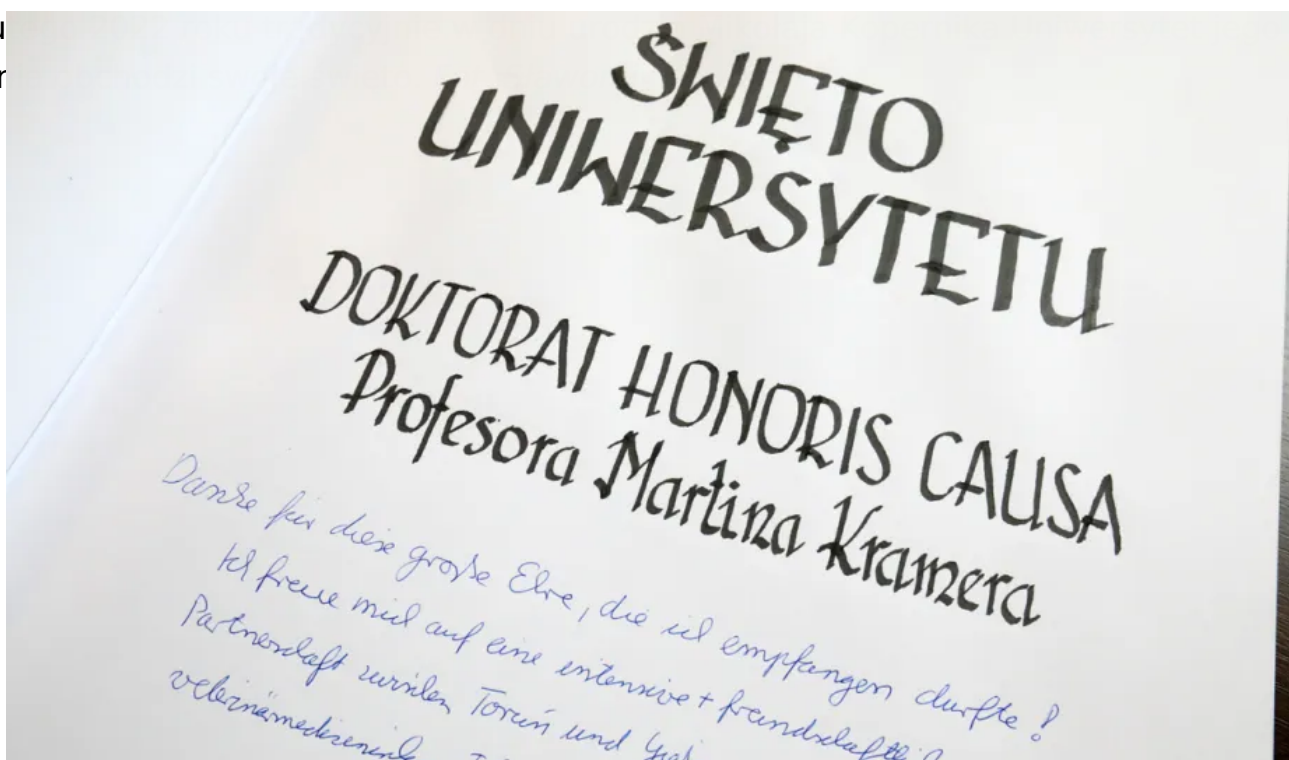 ŚWIĘTO
UNIWERSYTETU
DOKTORAT HONORIS CAUSA
Profesora Martina Kramera
Danke für diese große Ehre, die ich empfangen durfte!
Ich freue mich auf eine intensive + freundschaftliche
Partnerschaft zwischen Toruń und